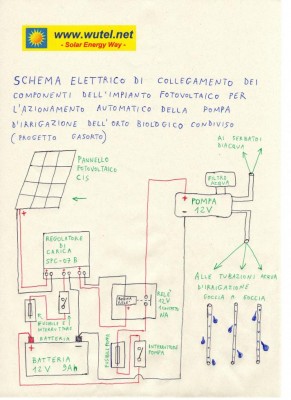 www.wutel.net
- Solar Energy Way -
SCHEMA ELETTRICO DI COLLEGAMENTO DEI
COMPONENTI DELL'IMPIANTO FOTOVOLTAICO PER
L'AZIONAMENTO AUTOMATICO DELLA POMPA
D'IRRIGAZIONE DELL'ORTO BIOLOGICO CONDIVISO
(PROGETTO GASORTO)
AI SERBATOI
D'ACQUA
PANNELLO
FOTOVOLTAICO
CIS
FILTRO
ACQUA
POMPA
12V
REGOLATORE DI
CARICA
SPC-07B
ALLE TUBAZIONI ACQUA
D'IRRIGAZIONE
GOCCIA A GOCCIA
RELÈ
12V
1 CONTATTO
NA
FUSIBILE E
INTERRUTTORE
BATTERIA
BATTERIA
12V 9Ah
FUSIBILE POMPA
INTERRUTTORE
POMPA